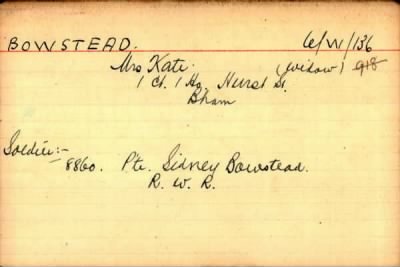 BOWSTEAD. 6/W/136
Mrs Kate. (Widow) 918
1 Ct. 1 Ho. Hurst St.
Bham
Soldier:-
8860. Pte. Sidney Bowstead.
R. W. R.